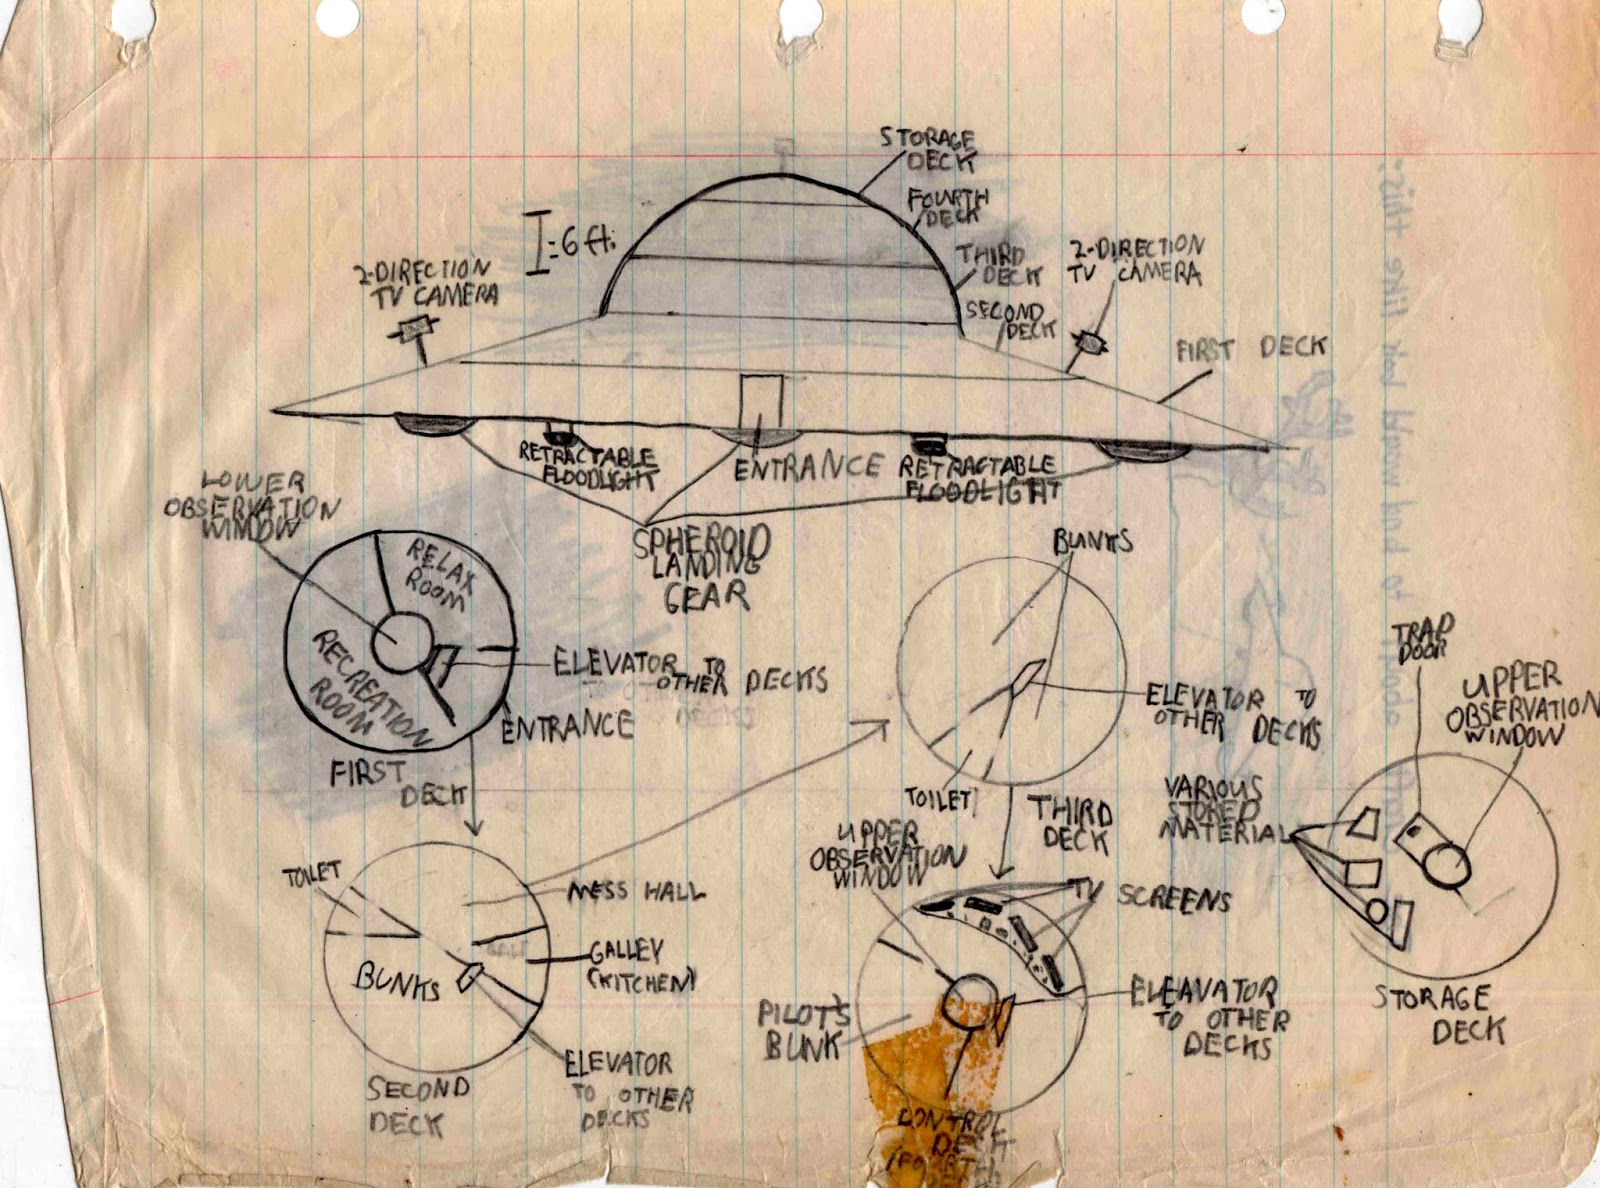 STORAGE
DECK
FOURTH
DECK
I=6ft.
2-DIRECTION
TV CAMERA
THIRD
DECK
2-DIRECTION
TV CAMERA
SECOND
DECK
FIRST DECK
RETRACTABLE
FLOODLIGHT
ENTRANCE
RETRACTABLE
FLOODLIGHT
SPHEROID
LANDING
GEAR
LOWER
OBSERVATION
WINDOW
RELAX
ROOM
RECREATION
ROOM
ELEVATOR TO
OTHER DECKS
ENTRANCE
FIRST
DECK
BUNKS
ELEVATOR TO
OTHER DECKS
TOILET
THIRD
DECK
TRAP
DOOR
UPPER
OBSERVATION
WINDOW
VARIOUS
STORED
MATERIAL
STORAGE
DECK
TOILET
MESS HALL
GALLEY
(KITCHEN)
BUNKS
ELEVATOR
TO OTHER
DECKS
SECOND
DECK
UPPER
OBSERVATION
WINDOW
TV SCREENS
PILOT'S
BUNK
ELEAVATOR
TO OTHER
DECKS
CONTROL
look like this.